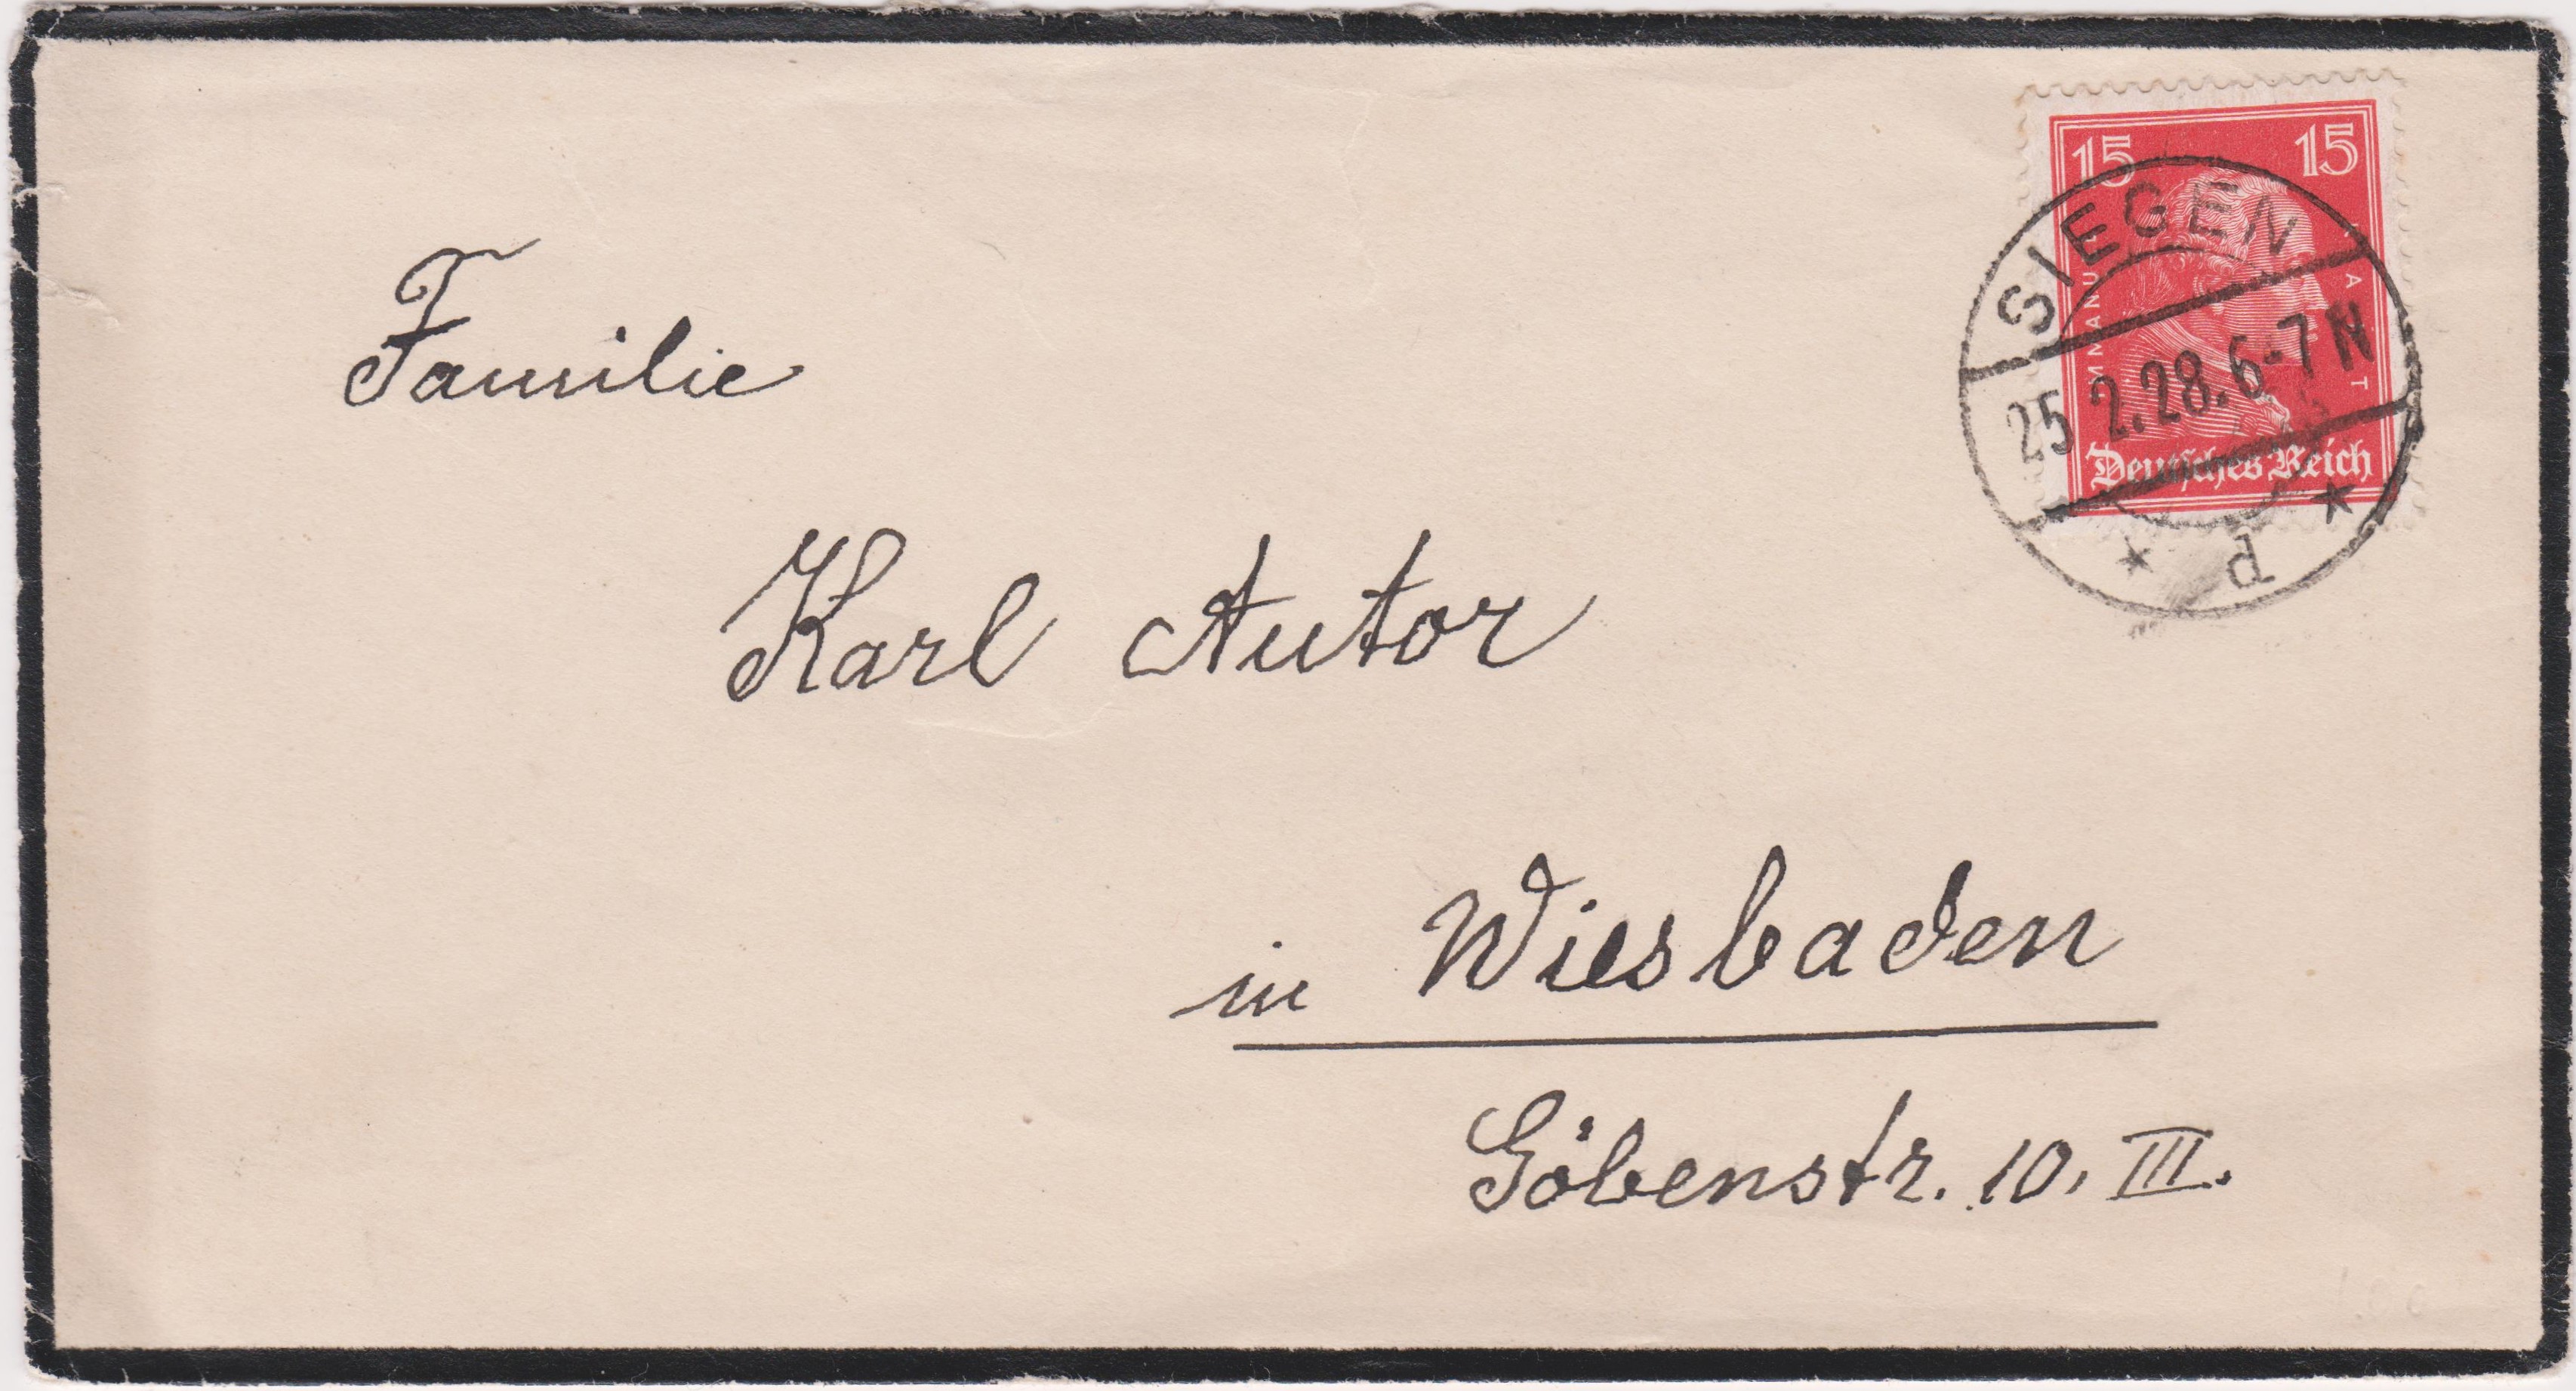 15 15
IMMANUEL KANT
Deutsches Reich
SIEGEN
25 2.28.6-7 N
* P *
Familie
Karl Autor
in Wiesbaden
Göbenstr. 10. III.